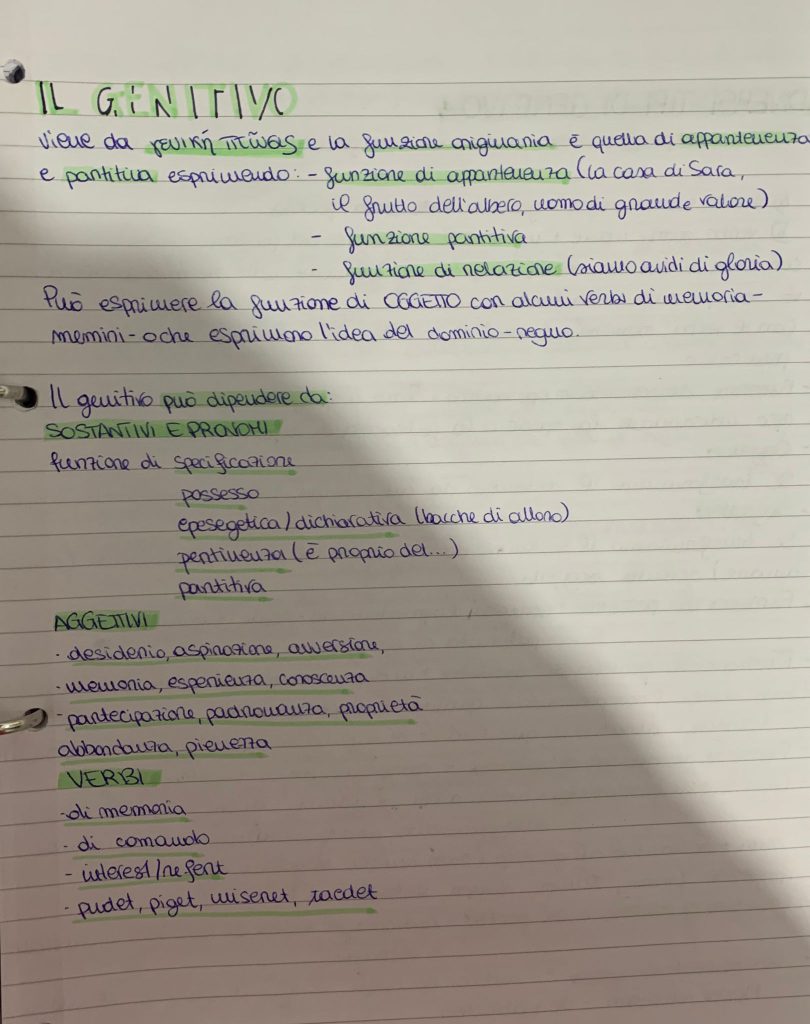 IL GENITIVO
viene da γενική πτῶσις e la funzione originaria è quella di appartenenza
e partitiva esprimendo: - funzione di appartenenza (la casa di Sara,
il frutto dell'albero, uomo di grande valore)
- funzione partitiva
- funzione di relazione (siamo avidi di gloria)
Può esprimere la funzione di OGGETTO con alcuni verbi di memoria-
memini-o che esprimono l'idea del dominio-regno.
Il genitivo può dipendere da:
SOSTANTIVI E PRONOMI
funzione di specificazione
possesso
epesegetica/dichiarativa (bacche di alloro)
pertinenza (è proprio del...)
partitiva
AGGETTIVI
- desiderio, aspirazione, avversione,
- memoria, esperienza, conoscenza
- partecipazione, padronanza, proprietà
abbondanza, pienezza
VERBI
- di memoria
- di comando
- interest/refert
- pudet, piget, miseret, taedet